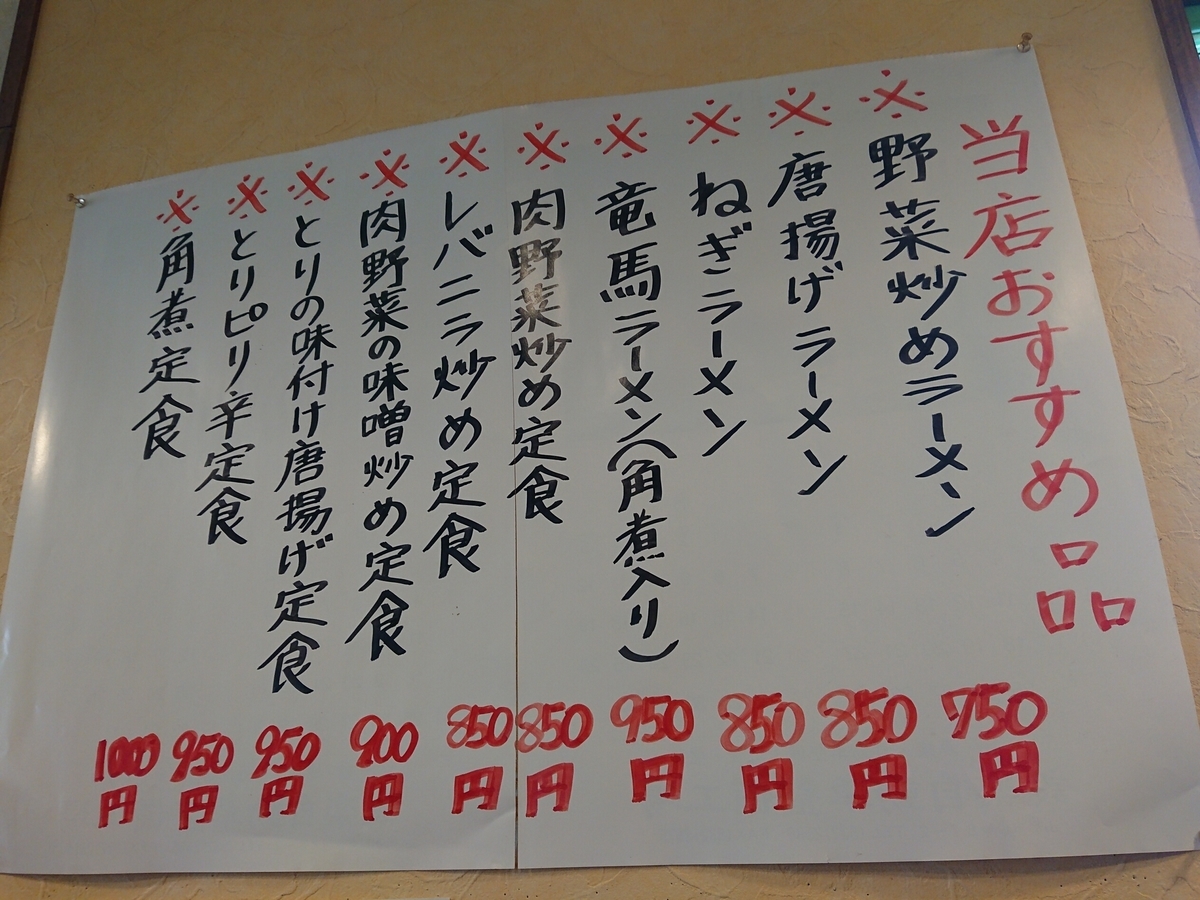 当店おすすめ品
※野菜炒めラーメン 750円
※唐揚げラーメン 850円
※ねぎラーメン 850円
※竜馬ラーメン(角煮入り) 950円
※肉野菜炒め定食 850円
※レバニラ炒め定食 850円
※肉野菜の味噌炒め定食 900円
※とりの味付け唐揚げ定食 950円
※とりピリ辛定食 950円
※角煮定食 1000円